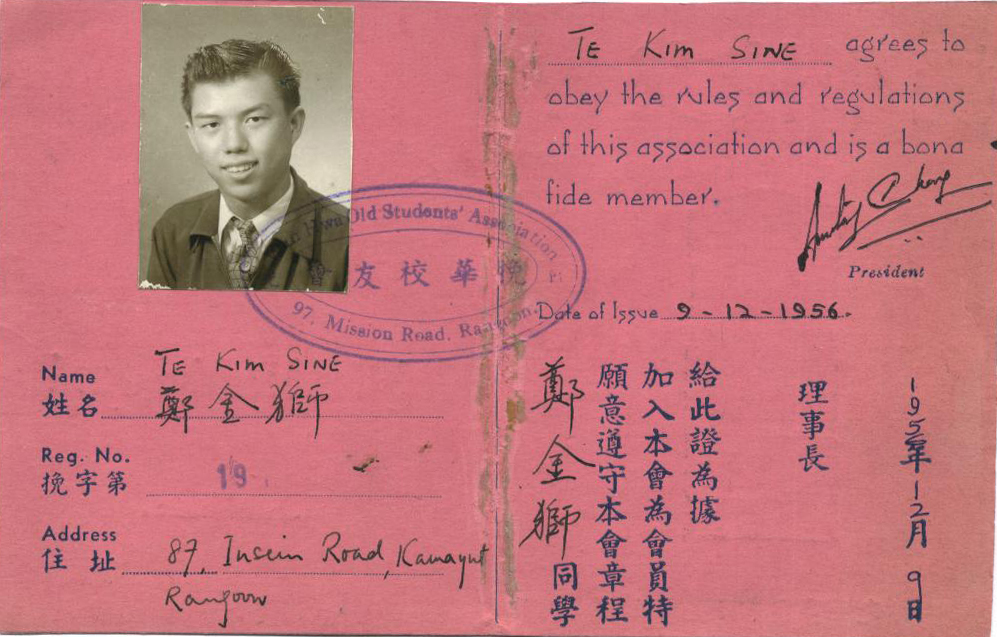 Hwa Old Students' Association
會友校華挽
97, Mission Road, Rangoon.
Name TE KIM SINE
姓名 鄭金獅
Reg. No.
挽字第 19
Address
住址 87, Insein Road, Kamayut
Rangoon
TE KIM SINE agrees to
obey the rules and regulations
of this association and is a bona
fide member.
President
Date of Issue 9-12-1956.
鄭金獅同學
願意遵守本會章程
加入本會為會員特
給此證為據
理事長
年12月9日